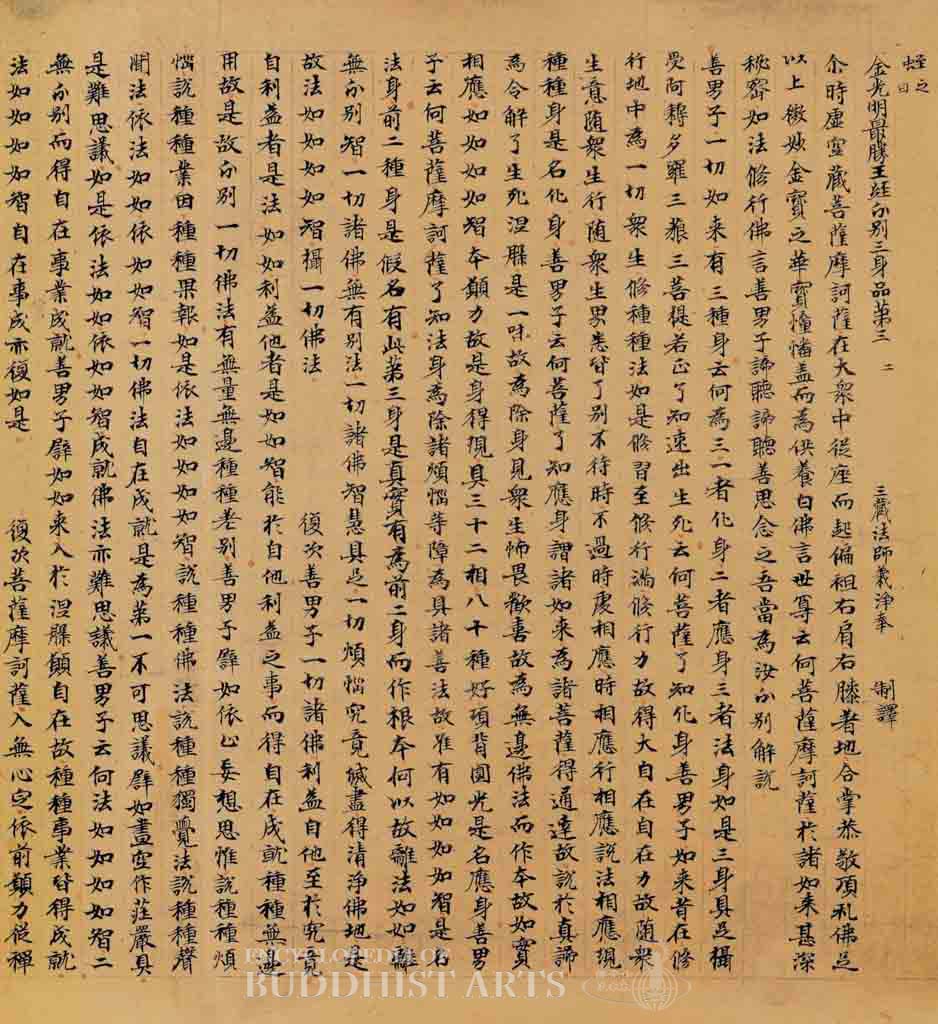 蛭之
日
金光明最勝王經分別三身品第三 二 三藏法師義淨奉 制譯
尒時虛空藏菩薩摩訶薩在大衆中從座而起偏袒右肩右膝著地合掌恭敬頂礼佛足
以上微妙金寶之華寶幢幡盖而為供養白佛言世尊云何菩薩摩訶薩於諸如来甚深
秘密如法脩行佛言善男子諦聽諦聽善思念之吾當為汝分別解說
善男子一切如来有三種身云何為三一者化身二者應身三者法身如是三身具足攝
受阿耨多羅三藐三菩提若正了知速出生死云何菩薩了知化身善男子如来昔在脩
行地中為一切衆生脩種種法如是脩習至脩行滿脩行力故得大自在自在力故随衆
生意随衆生行随衆生界悉皆了別不待時不過時處相應時相應行相應說法相應現
種種身是名化身善男子云何菩薩了知應身謂諸如来為諸菩薩得通達故說於真諦
為令解了生死涅槃是一味故為除身見衆生怖畏歡喜故為無邊佛法而作本故如實
相應如如如如智本願力故是身得現具三十二相八十種好項背圓光是名應身善男
子云何菩薩摩訶薩了知法身為除諸煩惱等障為具諸善法故唯有如如如如智是名
法身前二種身是假名有此第三身是真實有為前二身而作根本何以故離法如如離
無分別智一切諸佛無有別法一切諸佛智慧具足一切煩惱究竟滅盡得清淨佛地是
故法如如如如智攝一切佛法 復次善男子一切諸佛利益自他至於究竟
自利益者是法如如利益他者是如如智能於自他利益之事而得自在成就種種無邊
用故是故分別一切佛法有無量無邊種種差別善男子譬如依止妄想思惟說種種煩
惱說種種業因種種果報如是依法如如如如智說種種佛法說種種獨覺法說種種聲
聞法依法如如依如如智一切佛法自在成就是為第一不可思議譬如畫空作莊嚴具
是難思議如是依法如如依如如智成就佛法亦難思議善男子云何法如如如如智二
無分別而得自在事業成就善男子譬如如来入於涅槃願自在故種種事業皆得成就
法如如如如智自在事成亦復如是 復次菩薩摩訶薩入無心定依前願力從禪
ENCYCLOPEDIA OF
BUDDHIST ARTS
F.G.S.